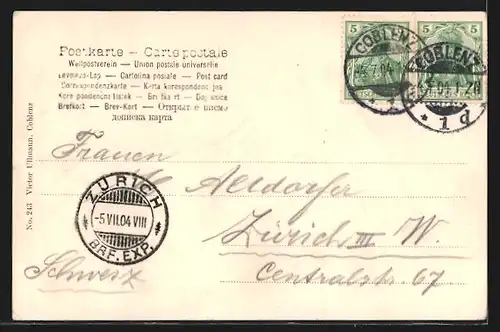 Postkarte — Carte postale
Weltpostverein — Union postale universelle
Levelezö-Lap — Cartolina postale — Post card
Correspondenzkarte — Karta korespondencyjna
Korespondenční lístek — Dopisnice
Brefkort — Brev-Kort — Открытое письмо
дописна карта
5 5
5 5
COBLENZ
7.04
COBLENZ
7.04
* 1 d
Frauen
M. Altdorfer
Zürich III W.
Centralstr. 67
Schweiz
ZÜRICH
-5 VII.04 VIII
BRF. EXP.
No. 243 Victor Ullmann, Coblenz